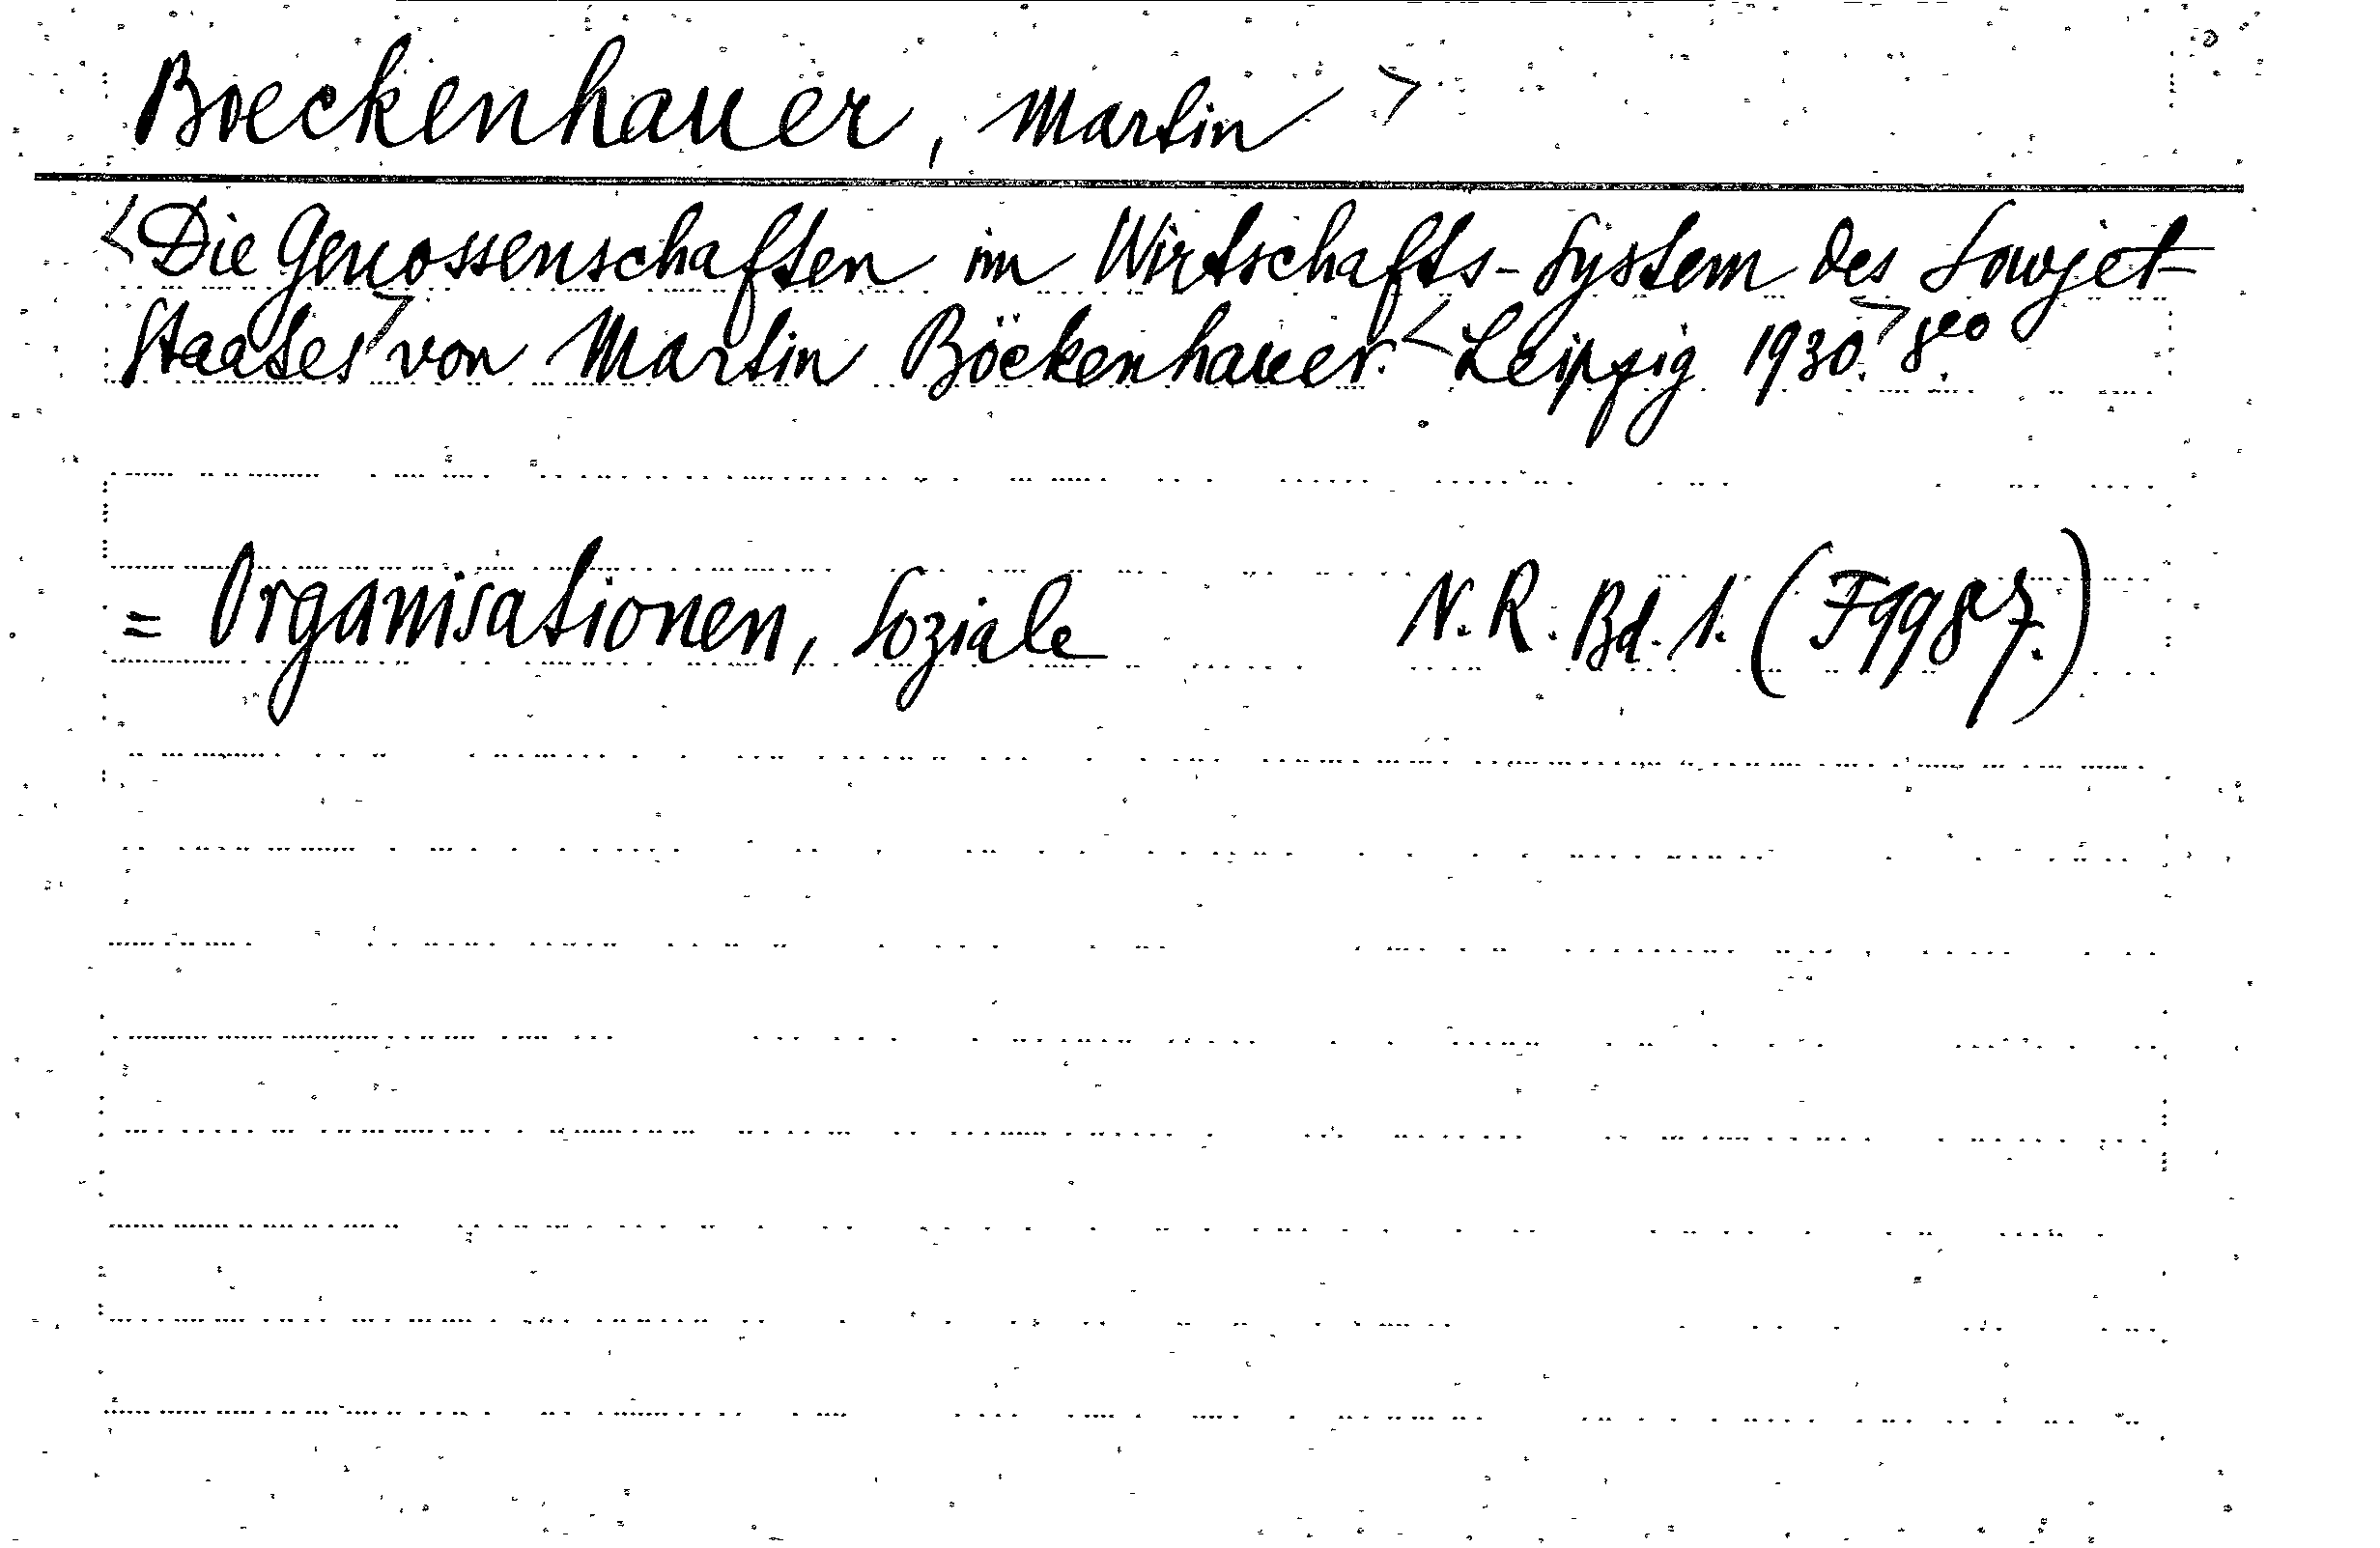 Boeckenhauer, Martin >
<Die Genossenschaften im Wirtschafts-System des Sowjet-
Staates> von Martin Böckenhauer. <Leipzig 1930.> 8⁰.
= Organisationen, Soziale N. R. Bd. 1. (F9987.)